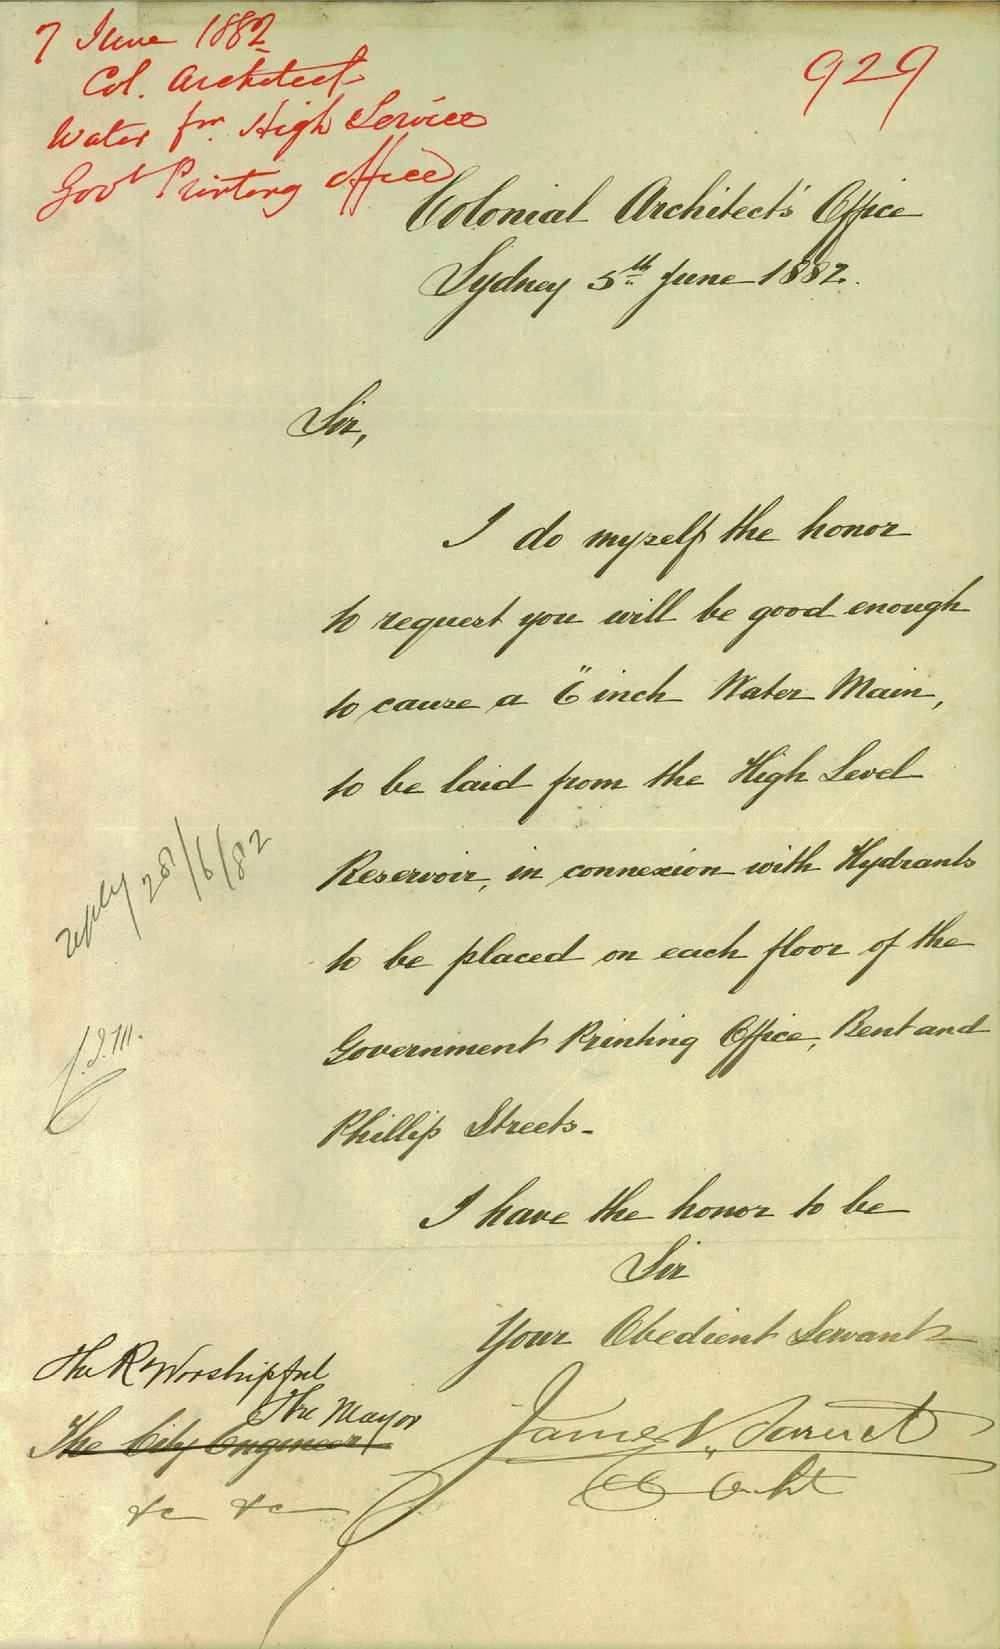 7 June 1882
Col. Architect
Water fm High Service
Govt Printing Office
929
Colonial Architect's Office
Sydney 5th June 1882.
Sir,
I do myself the honor
to request you will be good enough
to cause a 6" inch Water Main,
to be laid from the High Level
Reservoir, in connexion with Hydrants
to be placed on each floor of the
Government Printing Office, Bent and
Phillip Streets-
I have the honor to be
Sir
Your Obedient Servant
James Barnet
Col Archt
reply 28/6/82
The Rt Worshipful
The Mayor
The City Engineer
&c &c